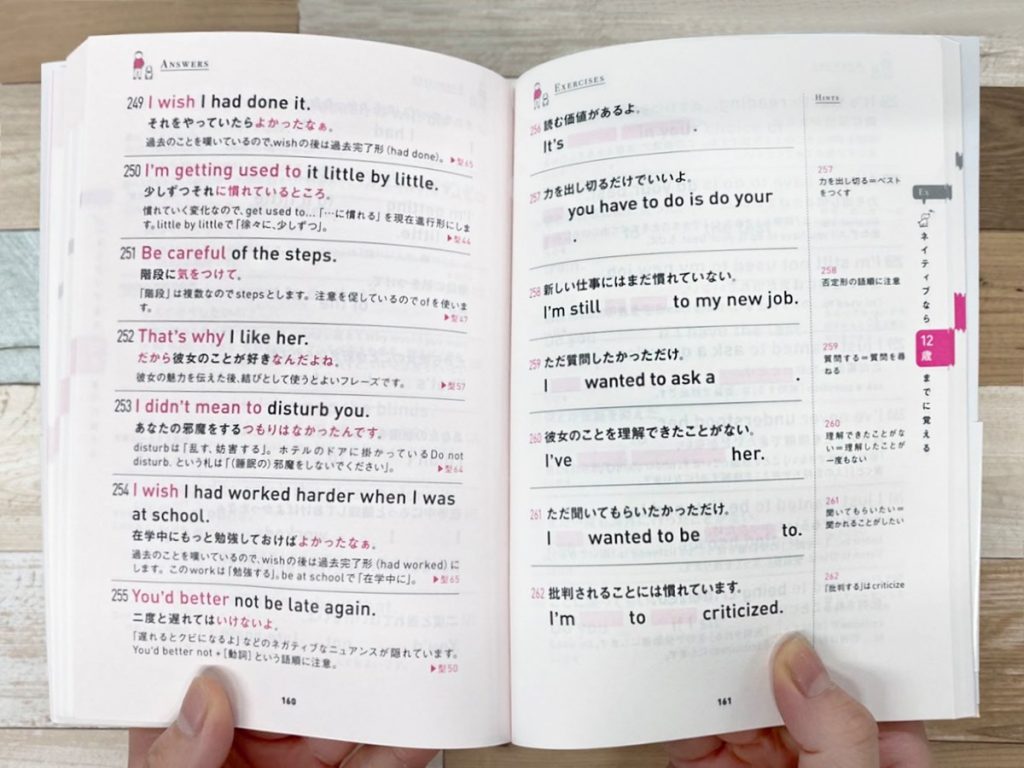 ANSWERS
249 I wish I had done it.
それをやっていたらよかったなぁ。
過去のことを嘆いているので、wishの後は過去完了形（had done）。 ▶型65
250 I'm getting used to it little by little.
少しずつそれに慣れているところ。
慣れていく変化なので、get used to...「…に慣れる」を現在進行形にしま
す。little by littleで「徐々に、少しずつ」。 ▶型44
251 Be careful of the steps.
階段に気をつけて。
「階段」は複数なのでstepsとします。注意を促しているのでofを使いま
す。 ▶型47
252 That's why I like her.
だから彼女のことが好きなんだよね。
彼女の魅力を伝えた後、結びとして使うとよいフレーズです。 ▶型57
253 I didn't mean to disturb you.
あなたの邪魔をするつもりはなかったんです。
disturbは「乱す、妨害する」。ホテルのドアに掛かっているDo not
disturb. という札は「（睡眠の）邪魔をしないでください」。 ▶型64
254 I wish I had worked harder when I was
at school.
在学中にもっと勉強しておけばよかったなぁ。
過去のことを嘆いているので、wishの後は過去完了形（had worked）に
します。このworkは「勉強する」。be at schoolで「在学中に」。 ▶型65
255 You'd better not be late again.
二度と遅れてはいけないよ。
「遅れるとクビになるよ」などのネガティブなニュアンスが隠れています。
You'd better not＋［動詞］という語順に注意。 ▶型50
160
EXERCISES
256 読む価値があるよ。
It's .
257 力を出し切るだけでいいよ。
you have to do is do your
.
258 新しい仕事にはまだ慣れていない。
I'm still to my new job.
259 ただ質問したかっただけ。
I wanted to ask a .
260 彼女のことを理解できたことがない。
I've her.
261 ただ聞いてもらいたかっただけ。
I wanted to be to.
262 批判されることには慣れています。
I'm to criticized.
161
HINTS
257
力を出し切る＝ベスト
をつくす
258
否定形の語順に注意
259
質問する＝質問を尋
ねる
260
理解できたことがな
い＝理解したことが
一度もない
261
聞いてもらいたい＝
聞かれることがしたい
262
「批判する」はcriticize
Ex
ネイティブなら12歳までに覚える